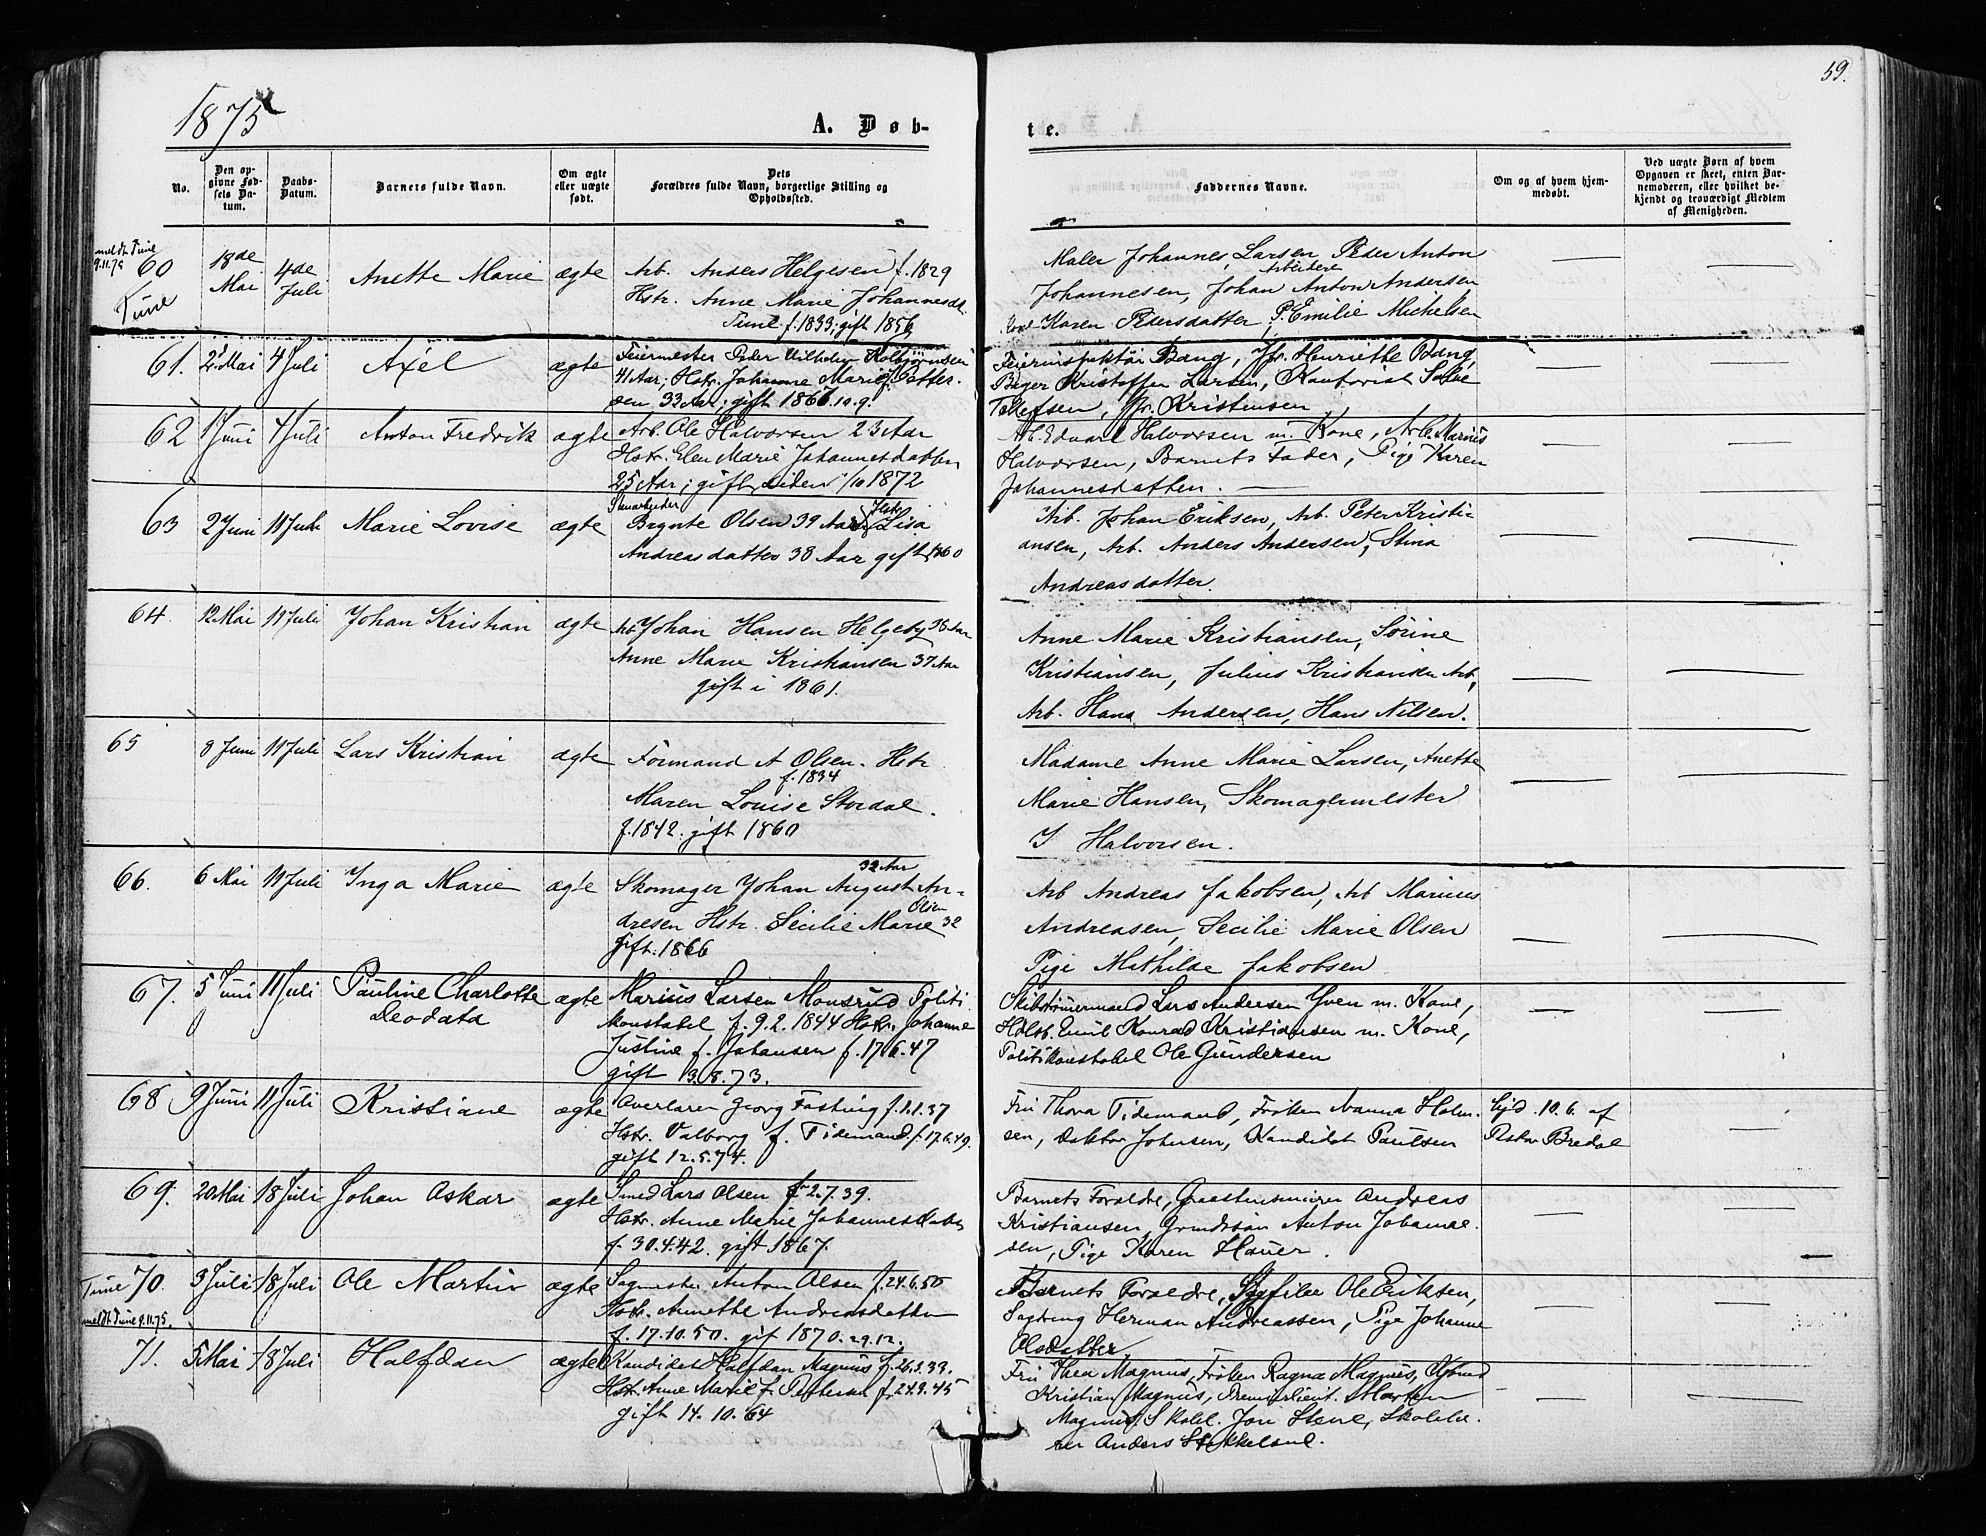 59.
1875
A. Døb-
te.
No.
Den op-
givne Fød-
sels Da-
tum.
Daabs-
Datum.
Barnets fulde Navn.
Om ægte
eller uægte
født.
Dets
Forældres fulde Navn, borgerlige Stilling og
Opholdssted.
Faddernes Navne.
Om og af hvem hjem-
medøbt.
Ved uægte Børn af hvem
Opgaven er skeet, enten Bar-
nemoderen, eller hvilket be-
kjendt og troværdigt Medlem
af Menigheden.
meldt Tune
9.11.75
60
Tune
18de
Mai
4de
Juli
Anette Marie
ægte
Arb. Anders Helgesen f. 1829
Hstr. Anne Marie Johannesdt.
Tune f. 1833; gift 1856
Maler Johannes Larsen, Peder Anton
Johannesen, Arbeider Johan Anton Andersen
Kone Karen Pedersdatter, P. Emilie Michelsen
61.
2 Mai
4 Juli
Axel
ægte
Feiermester Peder Vilhelm Kolbjörnsen
41 Aar; Hstr. Johanne Marie f. Petter-
sen 33 Aar; gift 1867.10.9.
Feierinspektör Bang, Jfr. Henriette Bang,
Bager Kristoffer Larsen, Kontorist
Tollefsen, Jfr. Kristensen
62
1 Juni
4 Juli
Anton Fredrik
ægte
Arb. Ole Halvorsen 23 Aar
Hstr. Elen Marie Johannesdatter
25 Aar; gift siden 1/10 1872
Arb. Edvart Halvorsen m. Kone, Arb. Marius
Halvorsen, Barnets Fader, Pige Karen
Johannesdatter.
63
2 Juni
11 Juli
Marie Lovise
ægte
Stenarbeider
Brynte Olsen 39 Aar Hstr. Lisa
Andreasdatter 38 Aar gift 1860
Arb. Johan Eriksen, Arb. Peter Kristi-
ansen, Arb. Anders Andersen, Stina
Andreasdatter.
64.
12 Mai
11 Juli
Johan Kristian
ægte
Arb Johan Hansen Helgeby 38 Aar
Anne Marie Kristiansen 37 Aar
gift i 1861.
Anne Marie Kristiansen, Sörine
Kristiansen, Julius Kristiansen Arb,
Arb. Hans Andersen, Hans Nilsen.
65
8 Juni
11 Juli
Lars Kristian
ægte
Formand A Olsen. Hstr.
f. 1834
Maren Louise Stordal.
f. 1842. gift 1860
Madame Anne Marie Larsen, Anette
Marie Hansen, Skomagermester
I Halvorsen.
66.
6 Mai
11 Juli
Inga Marie
ægte
32 Aar
Skomager Johan August An-
dresen Hstr. Secilie Marie Olsen 32
gift. 1866
Arb Andreas Jakobsen, Arb Marius
Andreasen, Secilie Marie Olsen
Pige Mathilde Jakobsen
67.
5 Juni
11 Juli
Pauline Charlotte
Deodata
ægte
Marius Larsen Monsrud Politi
konstabel f. 9.2.1844 Hstr. Johanne
Justine f. Johansen f. 17.6.47
gift 13.8.73.
Skibstömermand Lars Andersen Yven m. Kone,
Hdlsb. Emil Konrad Kristiansen m. Kone,
Politikonstabel Ole Gundersen
68
9 Juni
11 Juli
Kristiane
ægte
Overlærer Georg Fasting f. 1.1.37
Hstr. Valborg f. Tidemand f. 17.6.49.
gift 12.5.74.
Fru Thora Tidemand, Fröken Nanna Holm-
sen, Doktor Johnsen, Kandidat Paulsen
hjd. 10.6. af
Pastor Bredal
69.
20 Mai
18 Juli
Johan Oskar
ægte
Smed Lars Olsen f. 2.7.39.
Hstr. Anne Marie Johannesdatter
f. 30.4.42. gift 1867.
Barnets Forældre, Graastensmurer Andreas
Kristiansen, Anton Johanne-
sen, Pige Karen Hauer.
Tune 70.
meldt Tune 9.11.75.
3 Juli
18 Juli
Ole Martin
ægte
Sagmester Anton Olsen f. 24.6.50
Hstr. Annette Andreasdatter
f. 17.10.50. gif 1870.29.12.
Barnets Forældre, Sagfiler Ole Eriksen,
Sagdreng Herman Andreassen, Pige Johanne
Olsdatter
71.
5 Mai
18 Juli
Halfdan
ægte
Kandidat Halfdan Magnus f. 26.3.33.
Hstr. Anne Marie f. Petersen f. 24.9.45
gift 14.10.64
Fru Thea Magnus, Fröken Ragna Magnus,
Kristian Magnus, Premierlieut. Morten
Magnus, Skolel. Jon Stene, Skolelæ-
rer Anders Stokkeland.